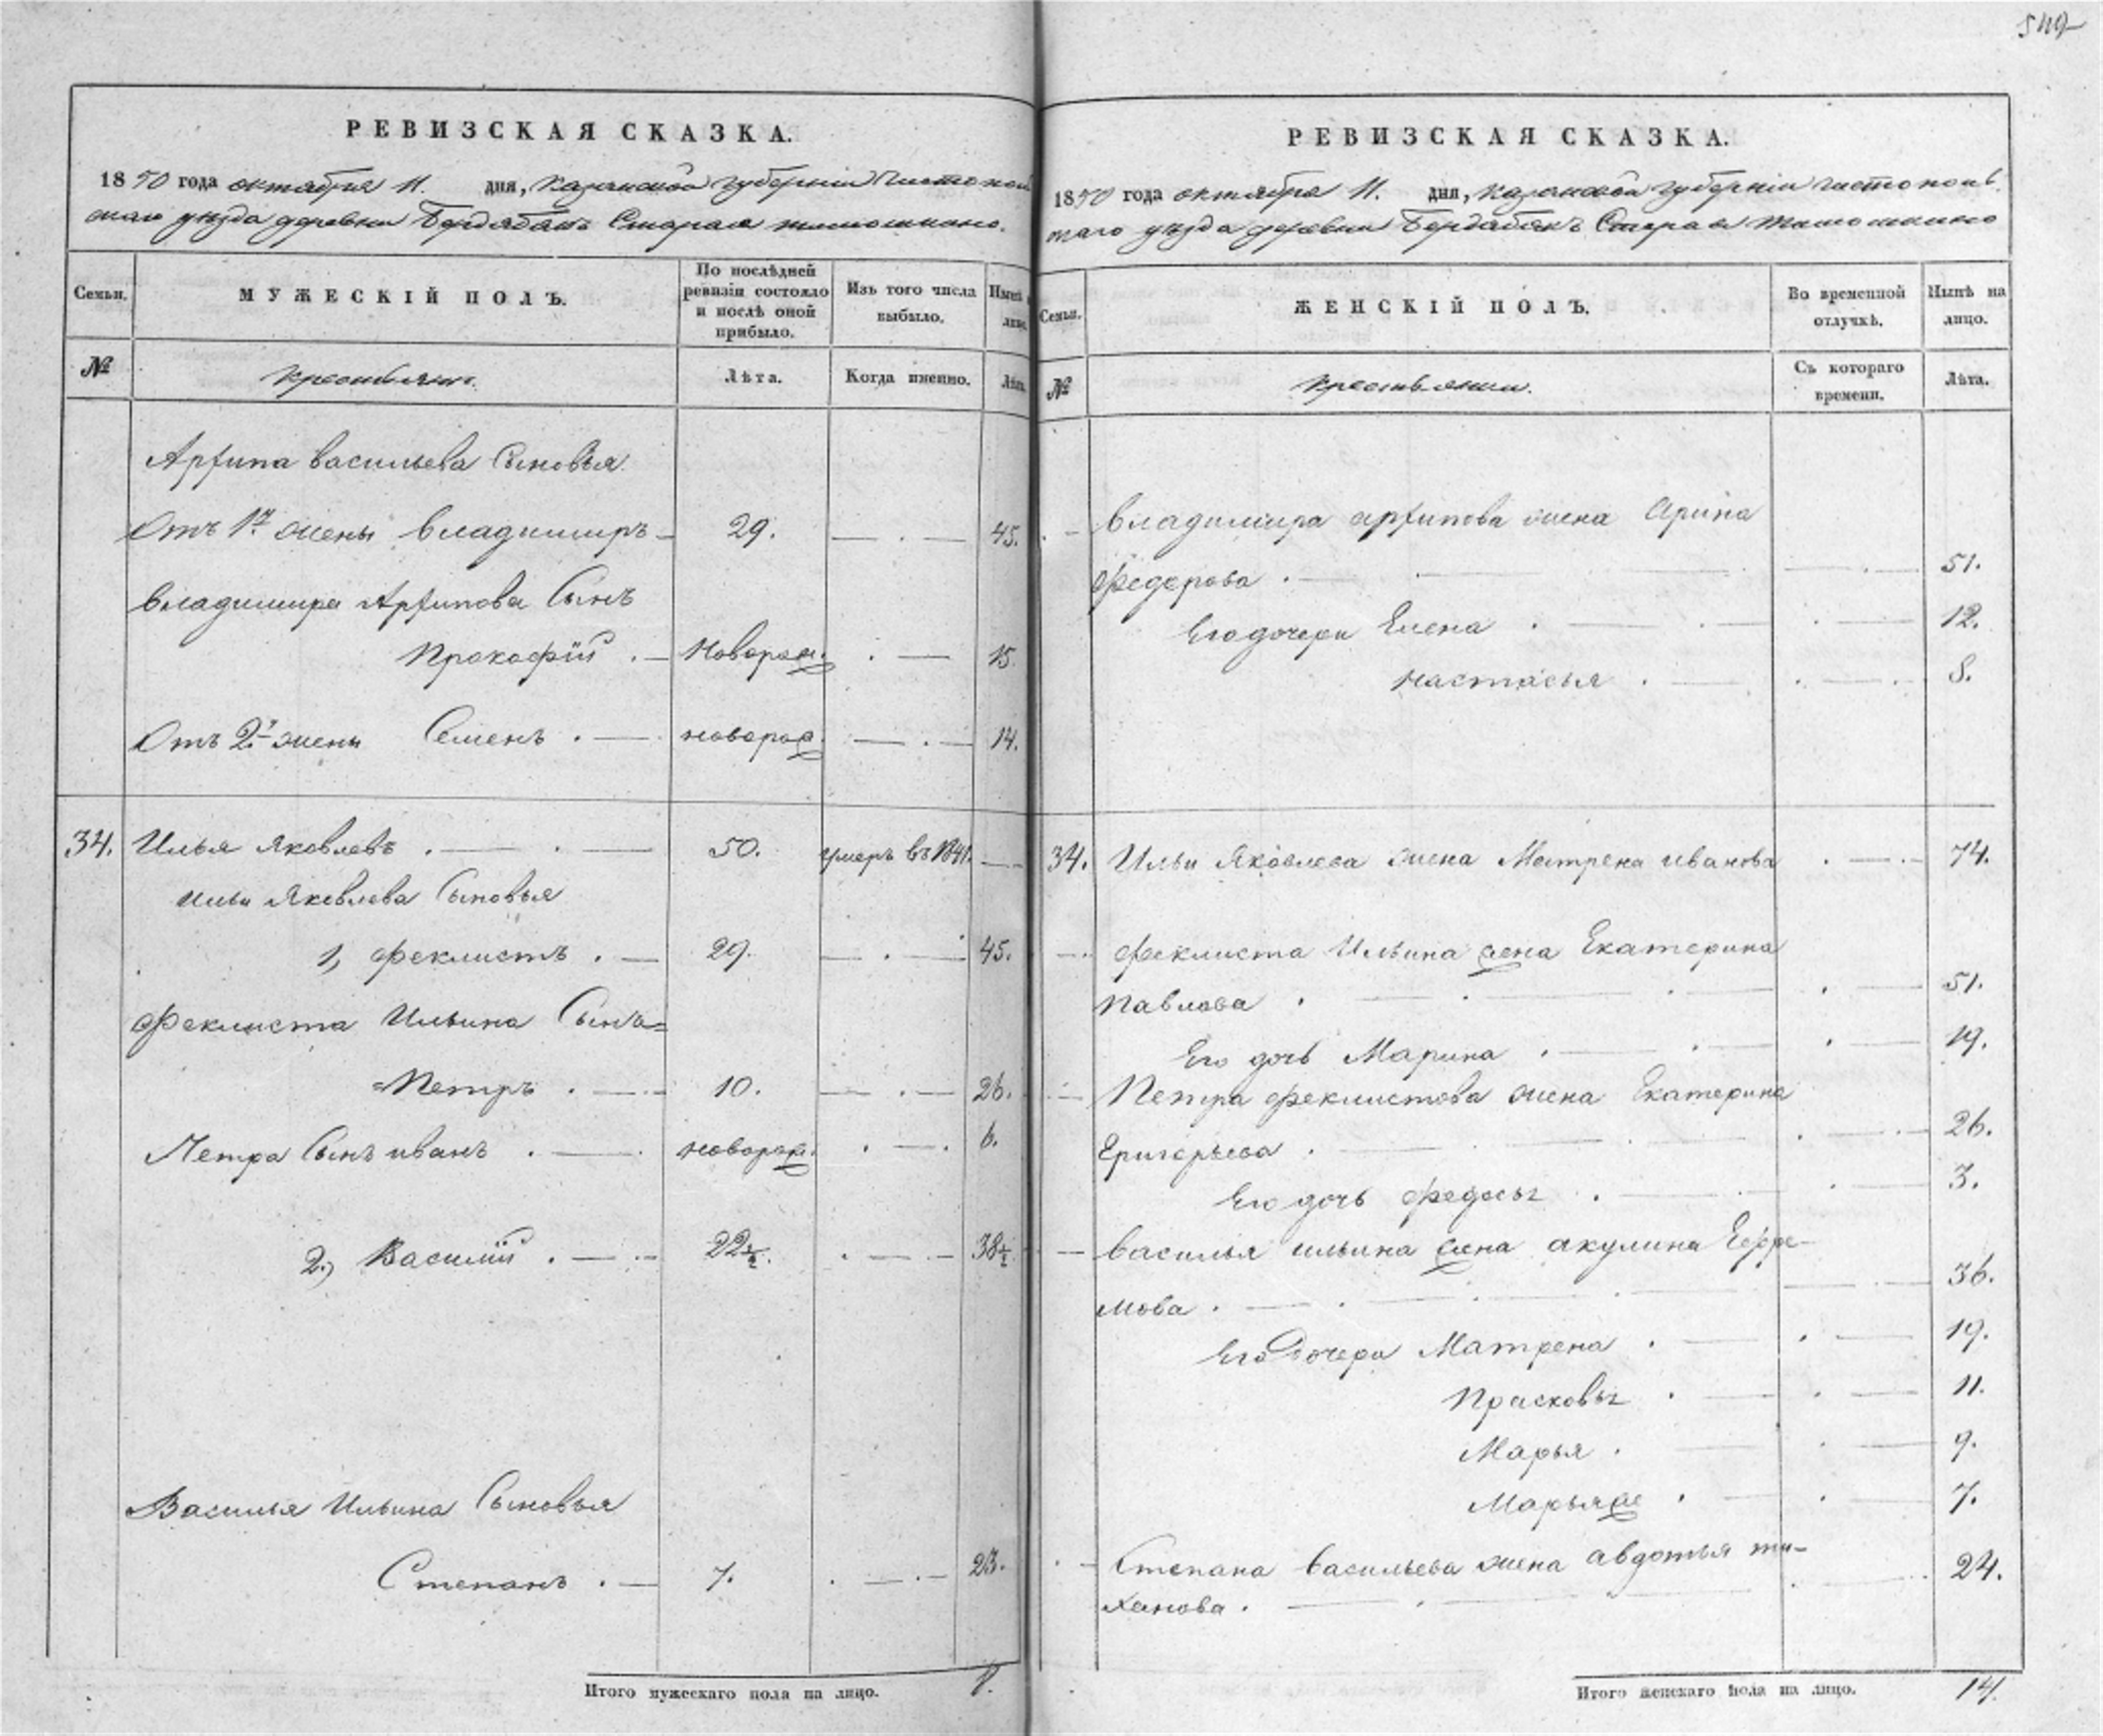 549
РЕВИЗСКАЯ СКАЗКА.
1850 года октября 11. дня, Казанской губернии Чистополь
скаго уезда деревни Бердебякъ Старая тожъ
Семьи.
МУЖЕСКІЙ ПОЛЪ.
По послѣдней ревизіи состояло и послѣ оной прибыло.
Изъ того числа выбыло.
Нынѣ на лицо.
№
крестьяне.
Лѣта.
Когда именно.
Лѣта.
Архипа васильева Сыновья
Отъ 1й жены Владимиръ 29. 45.
Владимира Архипова Сынъ
Прокофій Новорож. 15
Отъ 2й жены Семенъ новорож. 14.
34. Илья Яковлевъ 50. умеръ въ 1841.
Ильи Яковлева Сыновья
1, Феклистъ 29. 45.
Феклиста Ильина Сынъ=
=Петръ 10. 26.
Петра Сынъ иванъ новорож. 6.
2,) Василій 22½. 38½
Василья Ильина Сыновья
Степанъ 7. 23.
Итого мужескаго пола на лицо. 8.
РЕВИЗСКАЯ СКАЗКА.
1850 года октября 11. дня, Казанской губернии чистополь
скаго уезда деревни Бердебякъ Старая
Семьи.
ЖЕНСКІЙ ПОЛЪ.
Во временной отлучкѣ.
Нынѣ на лицо.
№
крестьянки.
Съ котораго времени.
Лѣта.
Владимира архипова жена Арина
Федерова 51.
Его дочери Елена 12.
настасья 8.
34. Ильи Яковлева жена Матрена иванова 74.
Феклиста Ильина жена Екатерина
Павлова 51.
Его дочь Марина 19.
Петра Феклистова жена Екатерина
Григорьева 26.
Его дочь Федосья 3.
Василья ильина жена акулина Ефре-
мова 36.
Его Дочери Матрена 19.
Прасковья 11.
Марья 9.
Марья же 7.
Степана васильева жена авдотья ти-
ханова 24.
Итого женскаго пола на лицо. 14.